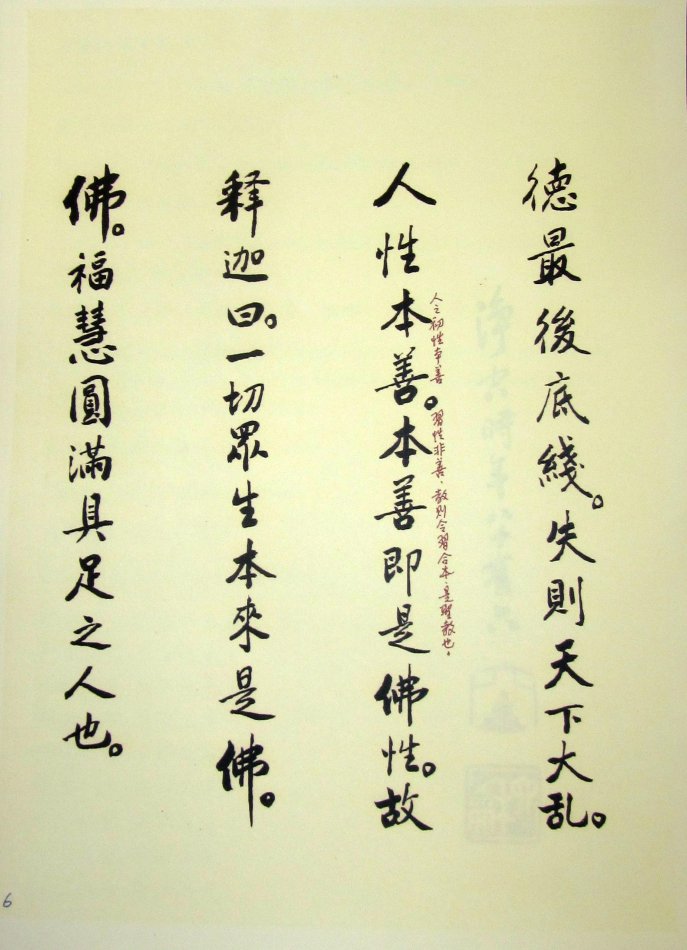 德最後底綫。失則天下大乱。
人之初性本善 習性非善、教則令習合本、是聖教也。
人性本善。本善即是佛性。故
释迦曰。一切眾生本來是佛。
佛。福慧圓滿具足之人也。
6